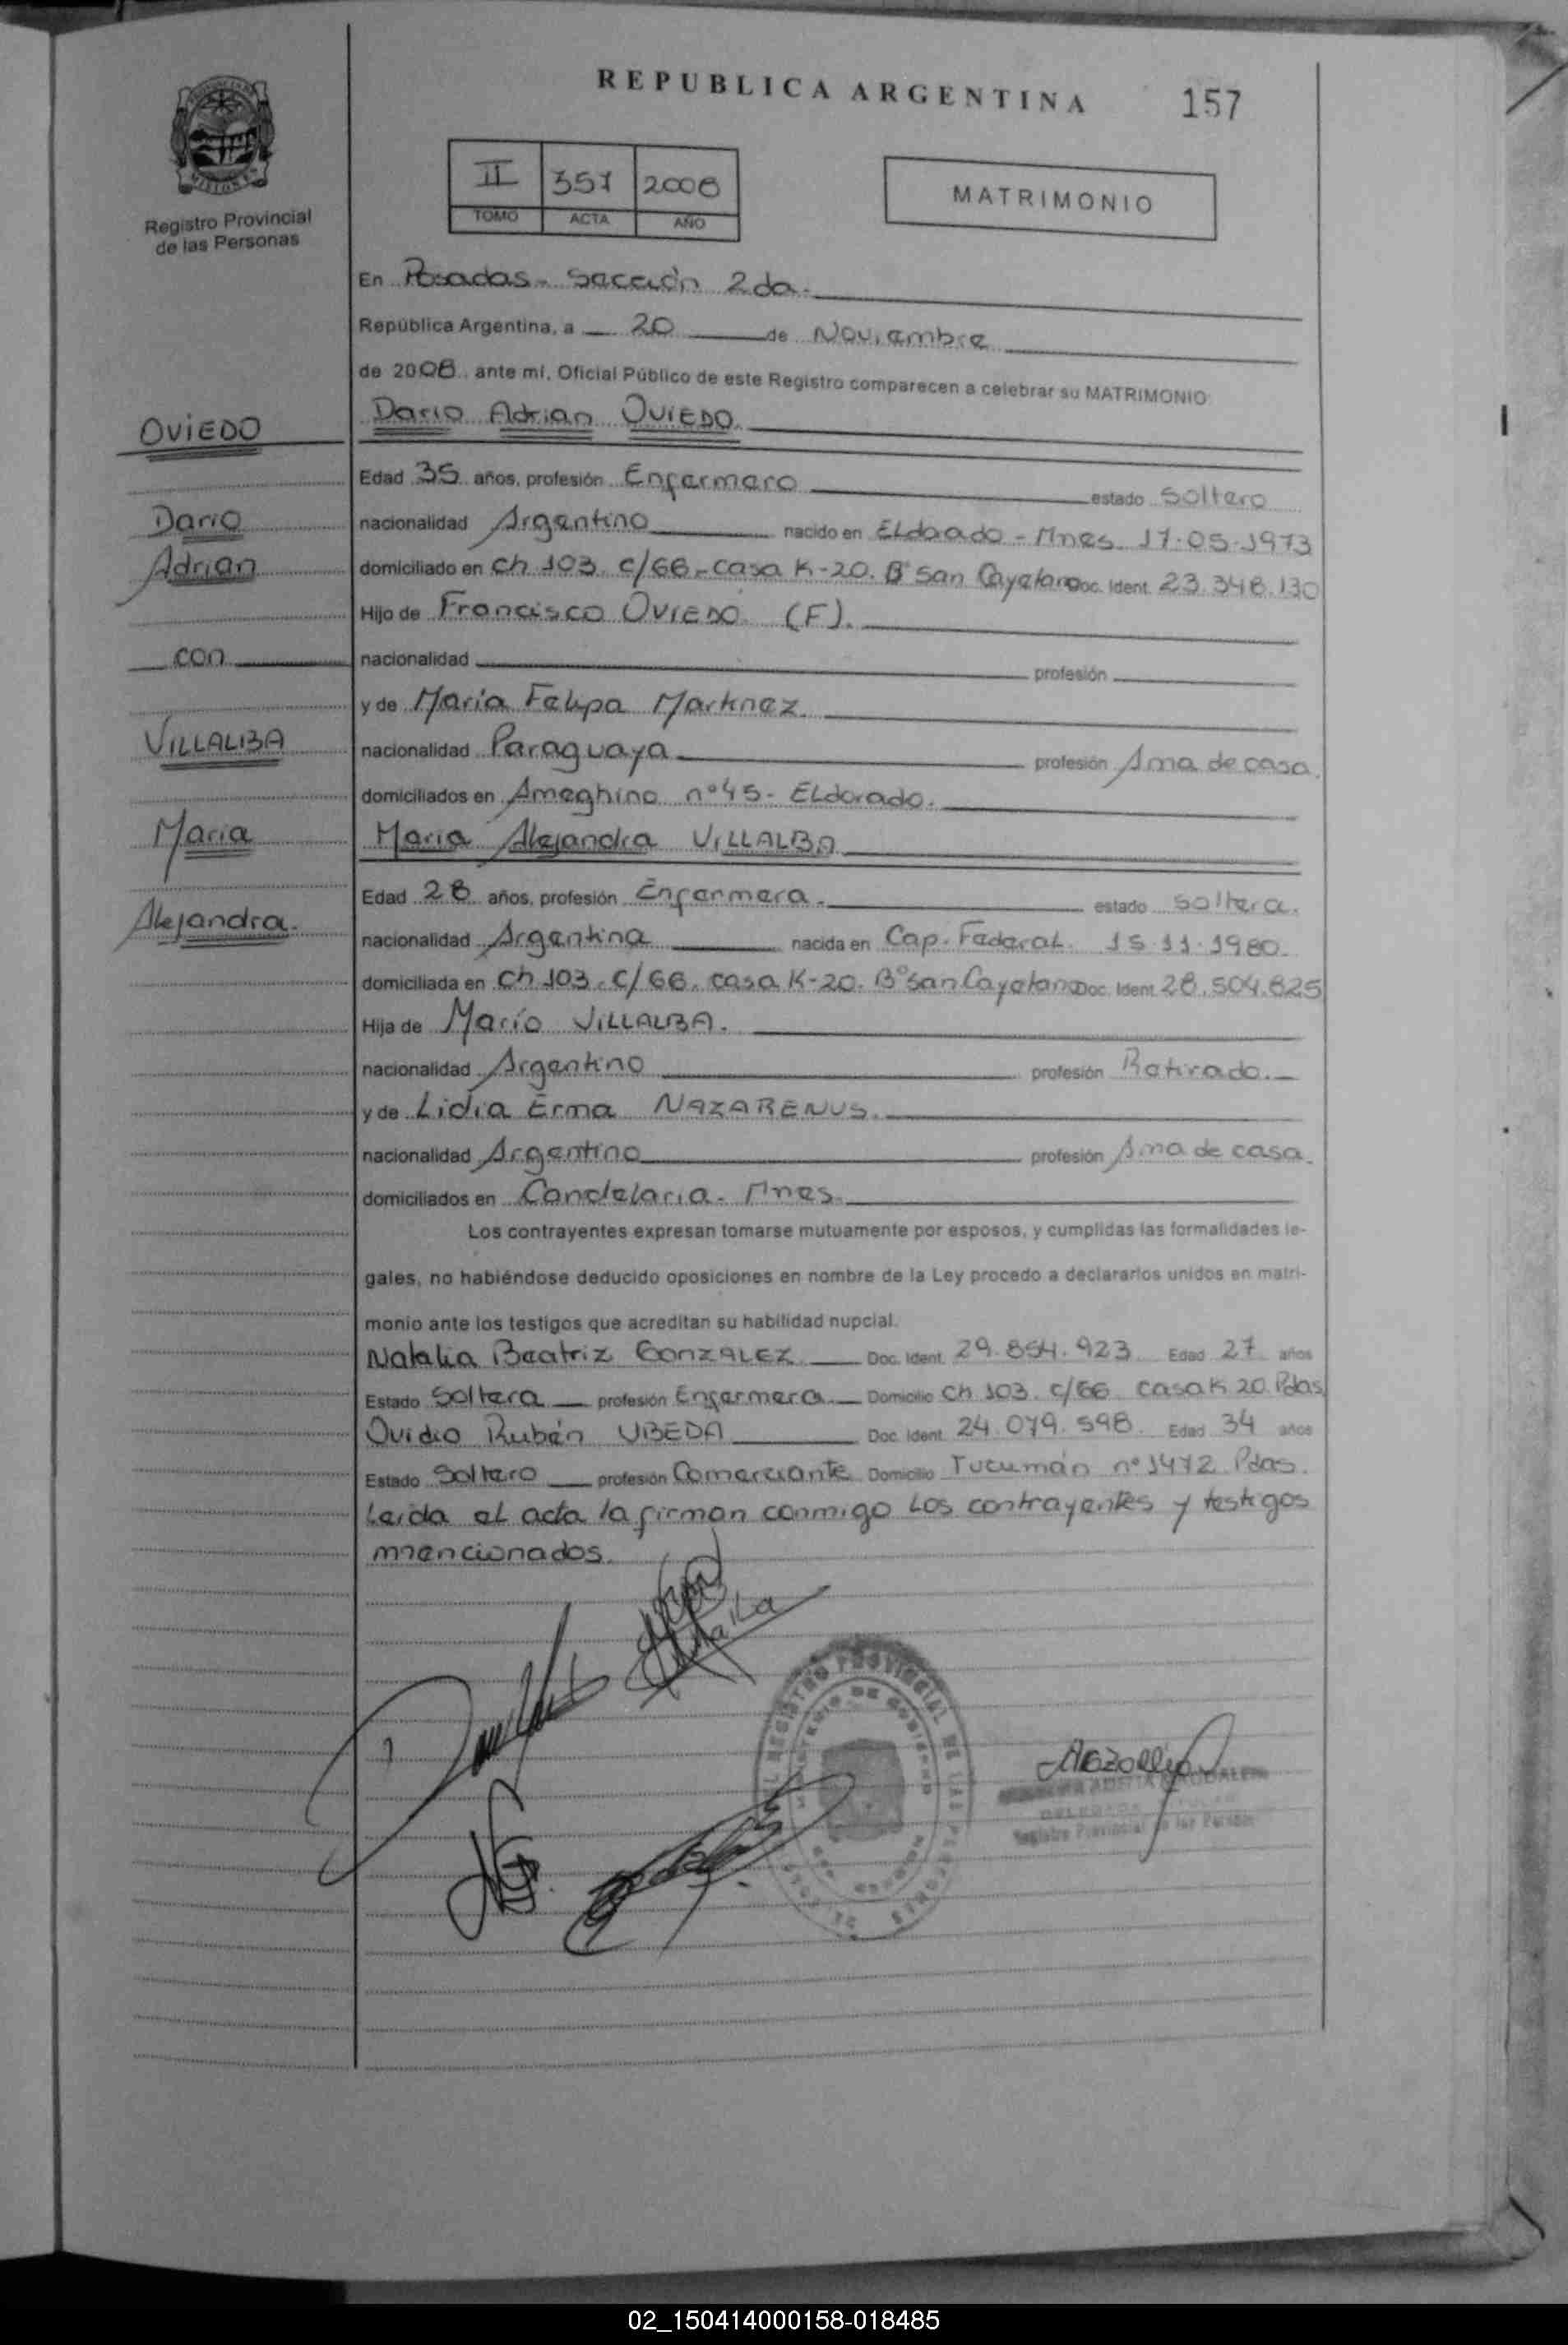 REPUBLICA ARGENTINA 157
II 357 2008
TOMO ACTA AÑO
MATRIMONIO
Registro Provincial
de las Personas
En Posadas - Sección 2da.
República Argentina, a 20 de Noviembre
de 2008 ante mí, Oficial Público de este Registro comparecen a celebrar su MATRIMONIO:
OVIEDO
Dario Adrian OVIEDO
Edad 35 años, profesión Enfermero estado Soltero
Dario
nacionalidad Argentino nacido en ELdorado - Mnes. 17.05.1973
Adrian
domiciliado en Ch 103. c/66 - casa K-20. Bº San Cayetano Doc. Ident. 23.348.130
Hijo de Francisco OVIEDO (F).
con
nacionalidad profesión
y de Maria Felipa Martinez.
VILLALBA
nacionalidad Paraguaya profesión Ama de casa.
domiciliados en Ameghino nº 45 - ELdorado.
Maria
Maria Alejandra VILLALBA
Edad 28 años, profesión Enfermera. estado soltera.
Alejandra.
nacionalidad Argentina nacida en Cap. FederaL. 15.11.1980.
domiciliada en Ch 103. c/66. casa K-20. Bº San Cayetano Doc. Ident. 28.504.825
Hija de Mario VILLALBA.
nacionalidad Argentino profesión Retirado.
y de Lidia Erma NAZARENUS.
nacionalidad Argentino profesión Ama de casa.
domiciliados en Candelaria - Mnes.
Los contrayentes expresan tomarse mutuamente por esposos, y cumplidas las formalidades le-
gales, no habiéndose deducido oposiciones en nombre de la Ley procedo a declararlos unidos en matri-
monio ante los testigos que acreditan su habilidad nupcial.
Natalia Beatriz GONZALEZ Doc. Ident. 29.854.923 Edad 27 años
Estado Soltera profesión Enfermera Domicilio Ch 103. c/66 casa K 20. Pdas
Ovidio Rubén UBEDA Doc. Ident. 24.079.598. Edad 34 años
Estado Soltero profesión Comerciante Domicilio Tucumán nº 1472 Pdas.
Leida el acta la firman conmigo Los contrayentes y testigos
mencionados.
REGISTRO PROVINCIAL DE LAS PERSONAS
MINISTERIO DE GOBIERNO
Registro Provincial de las Personas
02_150414000158-018485